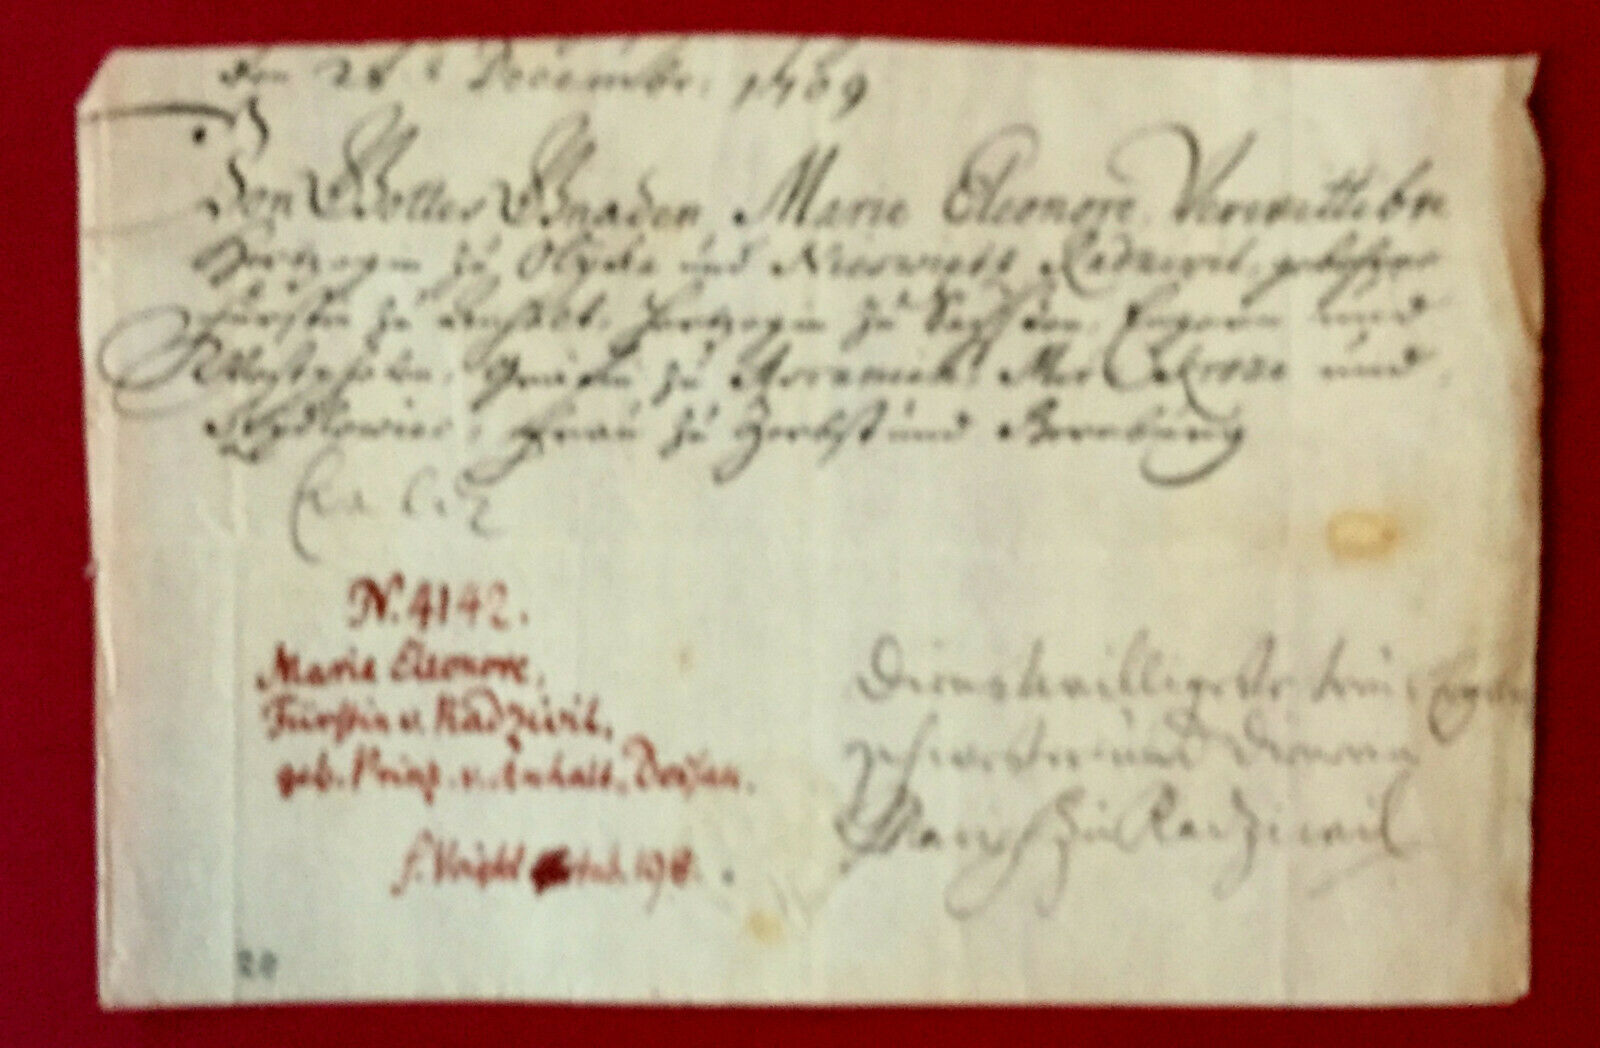 den 28 t. Decembr: 1709
Von Gottes Gnaden Marie Eleonore Verwittibte
Hertzogin zu Olÿcka und Nieswietz Radzivil, gebohrne
Fürstin zu Anhalt, Hertzogin zu Sachsen, Engern und
Westphalen, Gräfin zu Ascanien, Mir Crozе und
Sÿdlowiec, Frau zu Zerbst und Bernburg
N. 4142.
Marie Eleonore,
Fürstin v. Radzivil,
geb. Prinz. v. Anhalt, Dessau.
f. Voigtel
Dienstwilligste
schwester und Dienerin
zu Radziwil
28